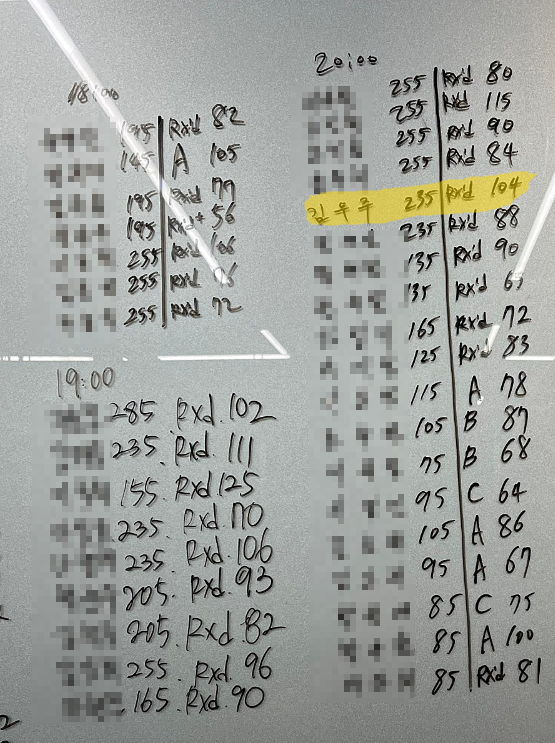 18:00
195 Rx'd 82
145 A 105
195 Rxd 79
195 Rxd+ 56
255 Rxd 106
255 Rxd
255 Rxd 72
19:00
285 Rxd. 102
235. Rxd. 111
155. Rxd 125
235. Rxd. 70
235. Rxd. 106
205. Rxd. 93
205. Rxd 82
255. Rxd. 96
165. Rxd. 90
20:00
255 Rx'd 80
255 Rx'd 115
255 Rx'd 90
255 Rx'd 84
김우우 235 Rx'd 104
235 Rx'd 88
135 Rx'd 90
135 Rx'd
165 Rx'd 72
125 Rx'd 83
115 A 78
105 B 87
75 B 68
95 C 64
105 A 86
95 A 67
85 C 75
85 A 100
85 Rx'd 81